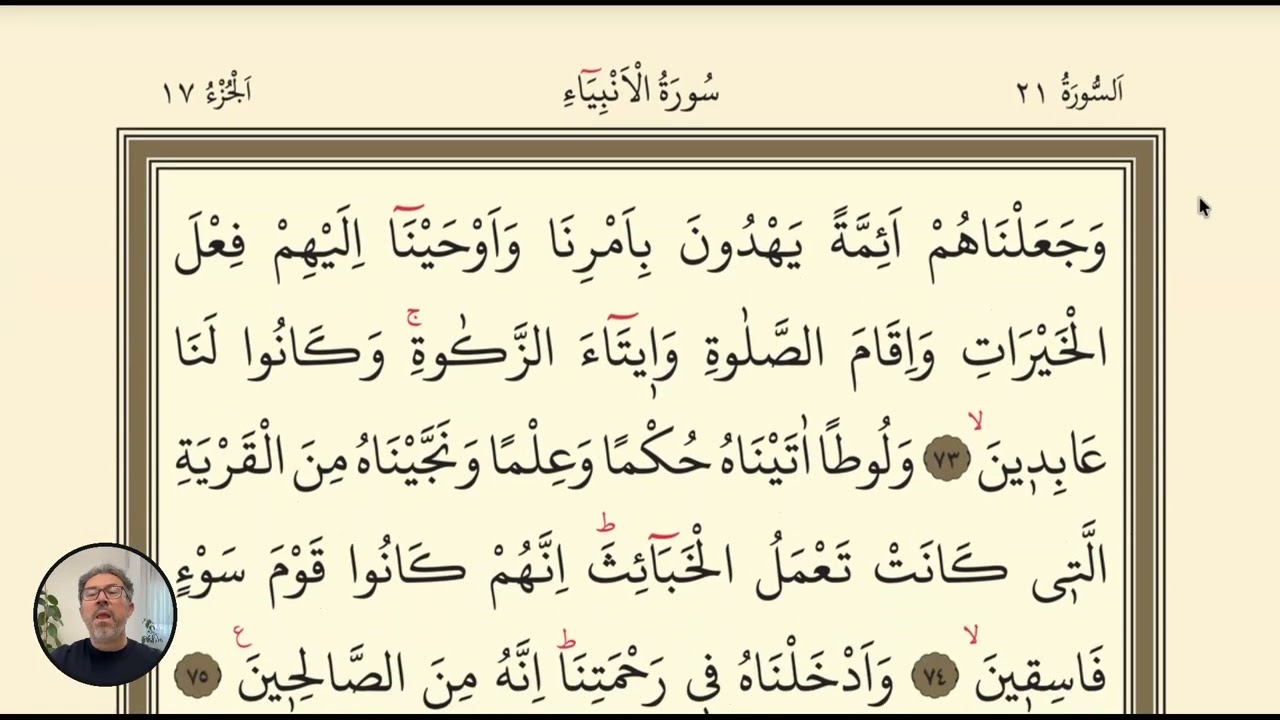 اَلسُّورَةُ ٢١ سُورَةُ الْاَنْبِيَٓاءِ اَلْجُزْءُ ١٧
وَجَعَلْنَاهُمْ اَئِمَّةً يَهْدُونَ بِاَمْرِنَا وَاَوْحَيْنَٓا اِلَيْهِمْ فِعْلَ
الْخَيْرَاتِ وَاِقَامَ الصَّلٰوةِ وَا۪يتَٓاءَ الزَّكٰوةِۚ وَكَانُوا لَنَا
عَابِد۪ينَۙ ٧٣ وَلُوطًا اٰتَيْنَاهُ حُكْمًا وَعِلْمًا وَنَجَّيْنَاهُ مِنَ الْقَرْيَةِ
الَّت۪ى كَانَتْ تَعْمَلُ الْخَبَٓائِثَۜ اِنَّهُمْ كَانُوا قَوْمَ سَوْءٍ
فَاسِق۪ينَۙ ٧٤ وَاَدْخَلْنَاهُ ف۪ى رَحْمَتِنَاۜ اِنَّهُ مِنَ الصَّالِح۪ينَ ع ٧٥